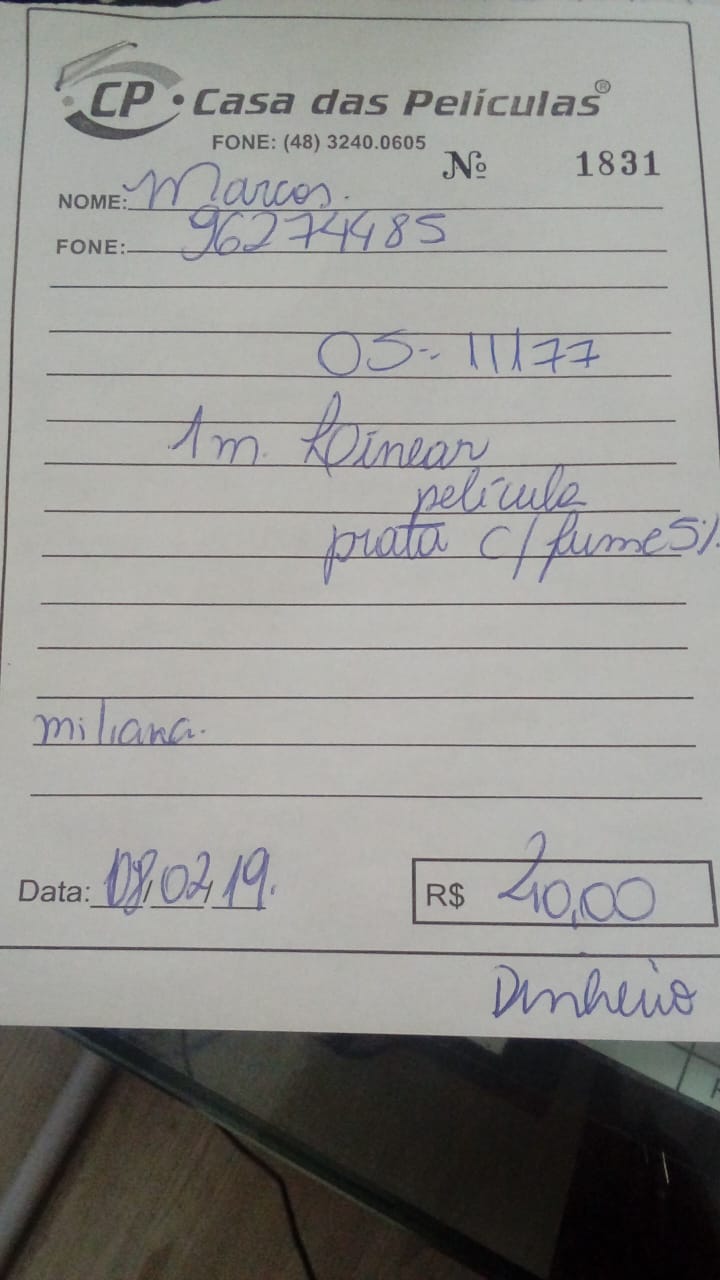 CP • Casa das Películas®
FONE: (48) 3240.0605
Nº 1831
NOME: Marcos.
FONE: 96274485
05-- 111177
1m. Linear
película
prata c/ fume 5%.
miliana.
Data: 08/02/19.
R$ 40,00
Dinheiro